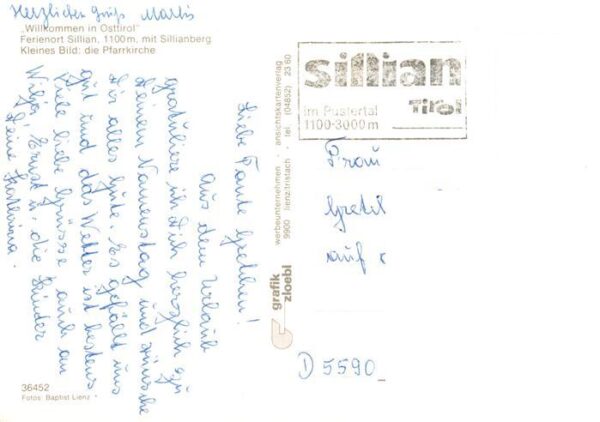 Herzlichen Gruß Martis
„Willkommen in Osttirol"
Ferienort Sillian, 1100m, mit Sillianberg
Kleines Bild: die Pfarrkirche
Liebe Tante Gretchen!
Aus dem Urlaub
gratuliere ich Dich herzlich zu
Deinem Namenstag und wünsche
Dir alles Gute. Es gefällt uns
gut und das Wetter ist bestens
Viele liebe Grüsse auch an
Ernst u. die Kinder
Deine
werbeunternehmen · ansichtskartenverlag
9900 lienz:tristach · tel. (04852) 23 60
grafik
zloebl
sillian
Tirol
im Pustertal
1100-3000m
Frau
auf
D 5590
36452
Fotos: Baptist Lienz